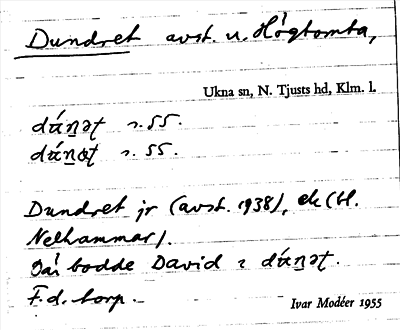 Dundret avst. u. Högtomta,
Ukna sn, N. Tjusts hd, Klm. l.
dúṉət s. 55.
dúṉət s. 55.
Dundret jr (avst. 1938), ek (bl.
Nelhammar).
Där bodde David i dúṉət.
F.d. torp.
Ivar Modéer 1955